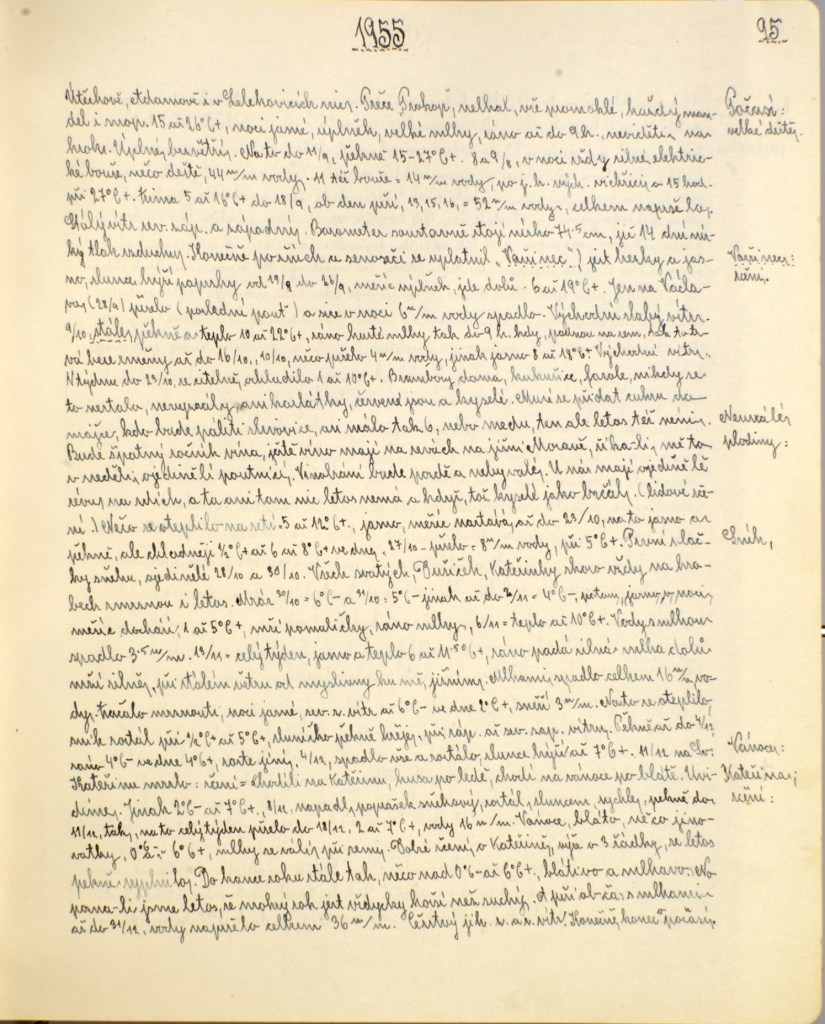 1955
95
Útěchově, Adamově i v Lelekovicích nic. Prče Prokop, nelhal, vše promoklé, každý man-
del i snop. 15 až 26°C+, noci jasné, úplněk, velké mlhy, ráno až do 9 h., neviděti na
krok. Úplné bezvětří. Na to do 11/9, pěkně 15-27°C+. 8 a 9/9, v noci vždy silné elektric-
ké bouře, něco deště, 44 m/m vody. 11 též bouře = 14 m/m vody, po j.h. vých. vichřici, o 15 hod.
při 27°C+. 5 až 16°C+ do 18/9, ob den prší, 13, 15, 16, = 52 m/m vody, celkem
Stálý vítr sev. záp. a západní. Barometer soustavně stojí nízko 74.5 cm, již 14 dní níz-
ký tlak vzduchu. Konečně po a senoseči se uplatnil „Vavřinec") jest hezky a jas-
no, slunce hýří paprsky od 19/9 do 26/9, měsíc úplněk, jde dolů. 6 až 19°C+. Jen na Václa-
va, (28/9) pršelo (poslední pouť) a sice v noci 6 m/m vody spadlo. Východní slabý vítr.
9/10, stále pěkně a teplo 10 až 22°C+, ráno husté mlhy tak do 9 h. kdy, padnou na zem, tak to tr-
vá beze změny až do 16/10, 10/10, něco pršelo 4 m/m vody, jinak jasno 8 až 18°C+ Východní vítr.
V týdnu do 23/10, se citelně, ochladilo 1 až 10°C+. Brambory doma, kukuřice, fazole, nikdy se
to nestalo, nevyzrály, ani karlátky, červené jsou a kyselé. Musí se přidat cukru do
kdo bude páliti slivovice, ani málo tak 6, nebo medu, ten ale letos též není.
Bude špatný ročník vína, ještě víno mají na révách na jižní Moravě, říkali, mě to
v neděli, ojedinělí poutníci. Vinobraní bude pozdě a nebyvalé. U nás mají ojedinělé
révy na zdích, a ta ani tam nic letos nemá a když, tož kyselé jako borčály. (lidové rče-
ní.) Něco se oteplilo na 5 až 12°C+, jasno, měsíc narůstá, až do 23/10, na to jasno a
pěkně, ale chladněji ½°C+ až 6 až 8°C+ ve dne, 27/10 - pršelo = 8 m/m vody, při 5°C+. První vloč-
ky sněhu, ojedinělé 28/10 a 30/10. Všech svatých, Dušiček, Kateřinky skoro vždy na hro-
bech zmrznou i letos. Mráz 30/10 = 6°C- a 31/10 = 5°C- jinak až do 2/11 = 4°C-, potom, jasno, v noci,
měsíc dochází, 1 až 5°C+, mží pomaličky, ráno mlhy, 6/11 = teplo až 10°C+. Vody s mlhou
spadlo 3.5 m/m. 13/11 = celý týden, jasno a teplo 6 až 11.5°C+, ráno padá silná mlha dolů
mží silně, při stálém větru od myslivny ku mě, jižním. Mlhami, spadlo celkem 16 m/m, vo-
dy. Začalo mrznouti, noci jasné, sev. v. vítr až 6°C- ve dne 2°C+, sněží 3 m/m. Na to se oteplilo,
sníh roztál při ½°C+ až 5°C+, sluníčko pěkně hřeje, při záp. až sev. zap. větru. Pěkně až do 4/12
ráno 4°C- ve dne 4°C+, roste jíní. 4/12, spadlo vše a roztálo, slunce hýří až 7°C+. 11/12 na Sv.
Kateřinu mrzlo: rčení = Chodíli na Katěřinu, husa po ledě, chodí na vánoce po blátě. Uvi-
díme. Jinak 2°C- až 7°C+, 8/12, napadl, poprašek sněhový, roztál, sluncem, rychle, pěkně do
11/12, tak, na to celý týden pršelo do 18/12, 2 až 7°C+, vody 16 m/m. Vánoce, bláto, něco jíno-
vatky, 0°C- 6°C+, mlhy se válí při zemi. Dobré rčení, o Kateřině, výše o 3 řádky, se letos
pěkně vyplnilo. Do konce roku stále tak, něco nad 0°C- až 6°C+, blátivo a mlhavo. Po
zna-li jsme letos, že mokrý rok jest vždycky horší než suchý. A při občas s mlhami -
až do 31/12, vody napršelo celkem 36 m/m. Čerstvý jih. v. a z. vítr. Konečně „konec" počasí.
Počasí:
velké deště.
Vavřinec:
rčení.
Neuzrálé
plodiny:
Sníh,
Vánoce:
Kateřina;
rčení: